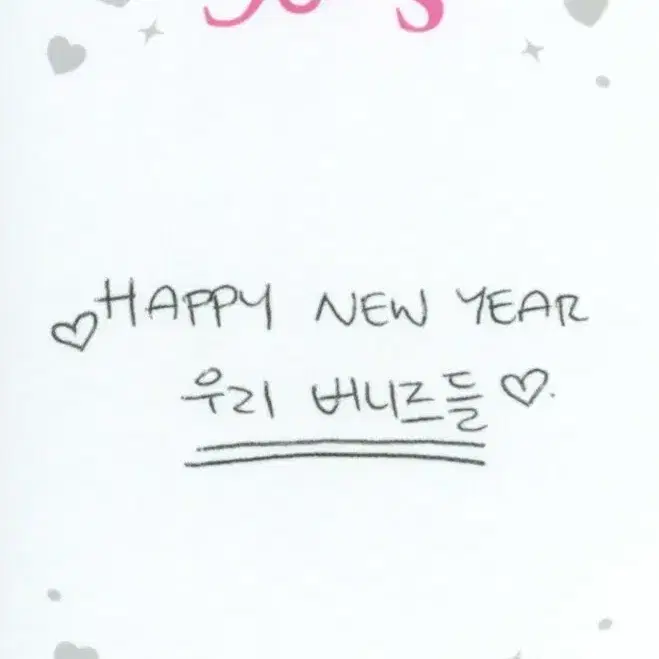 ♡HAPPY NEW YEAR
우리 버니즈들 ♡.